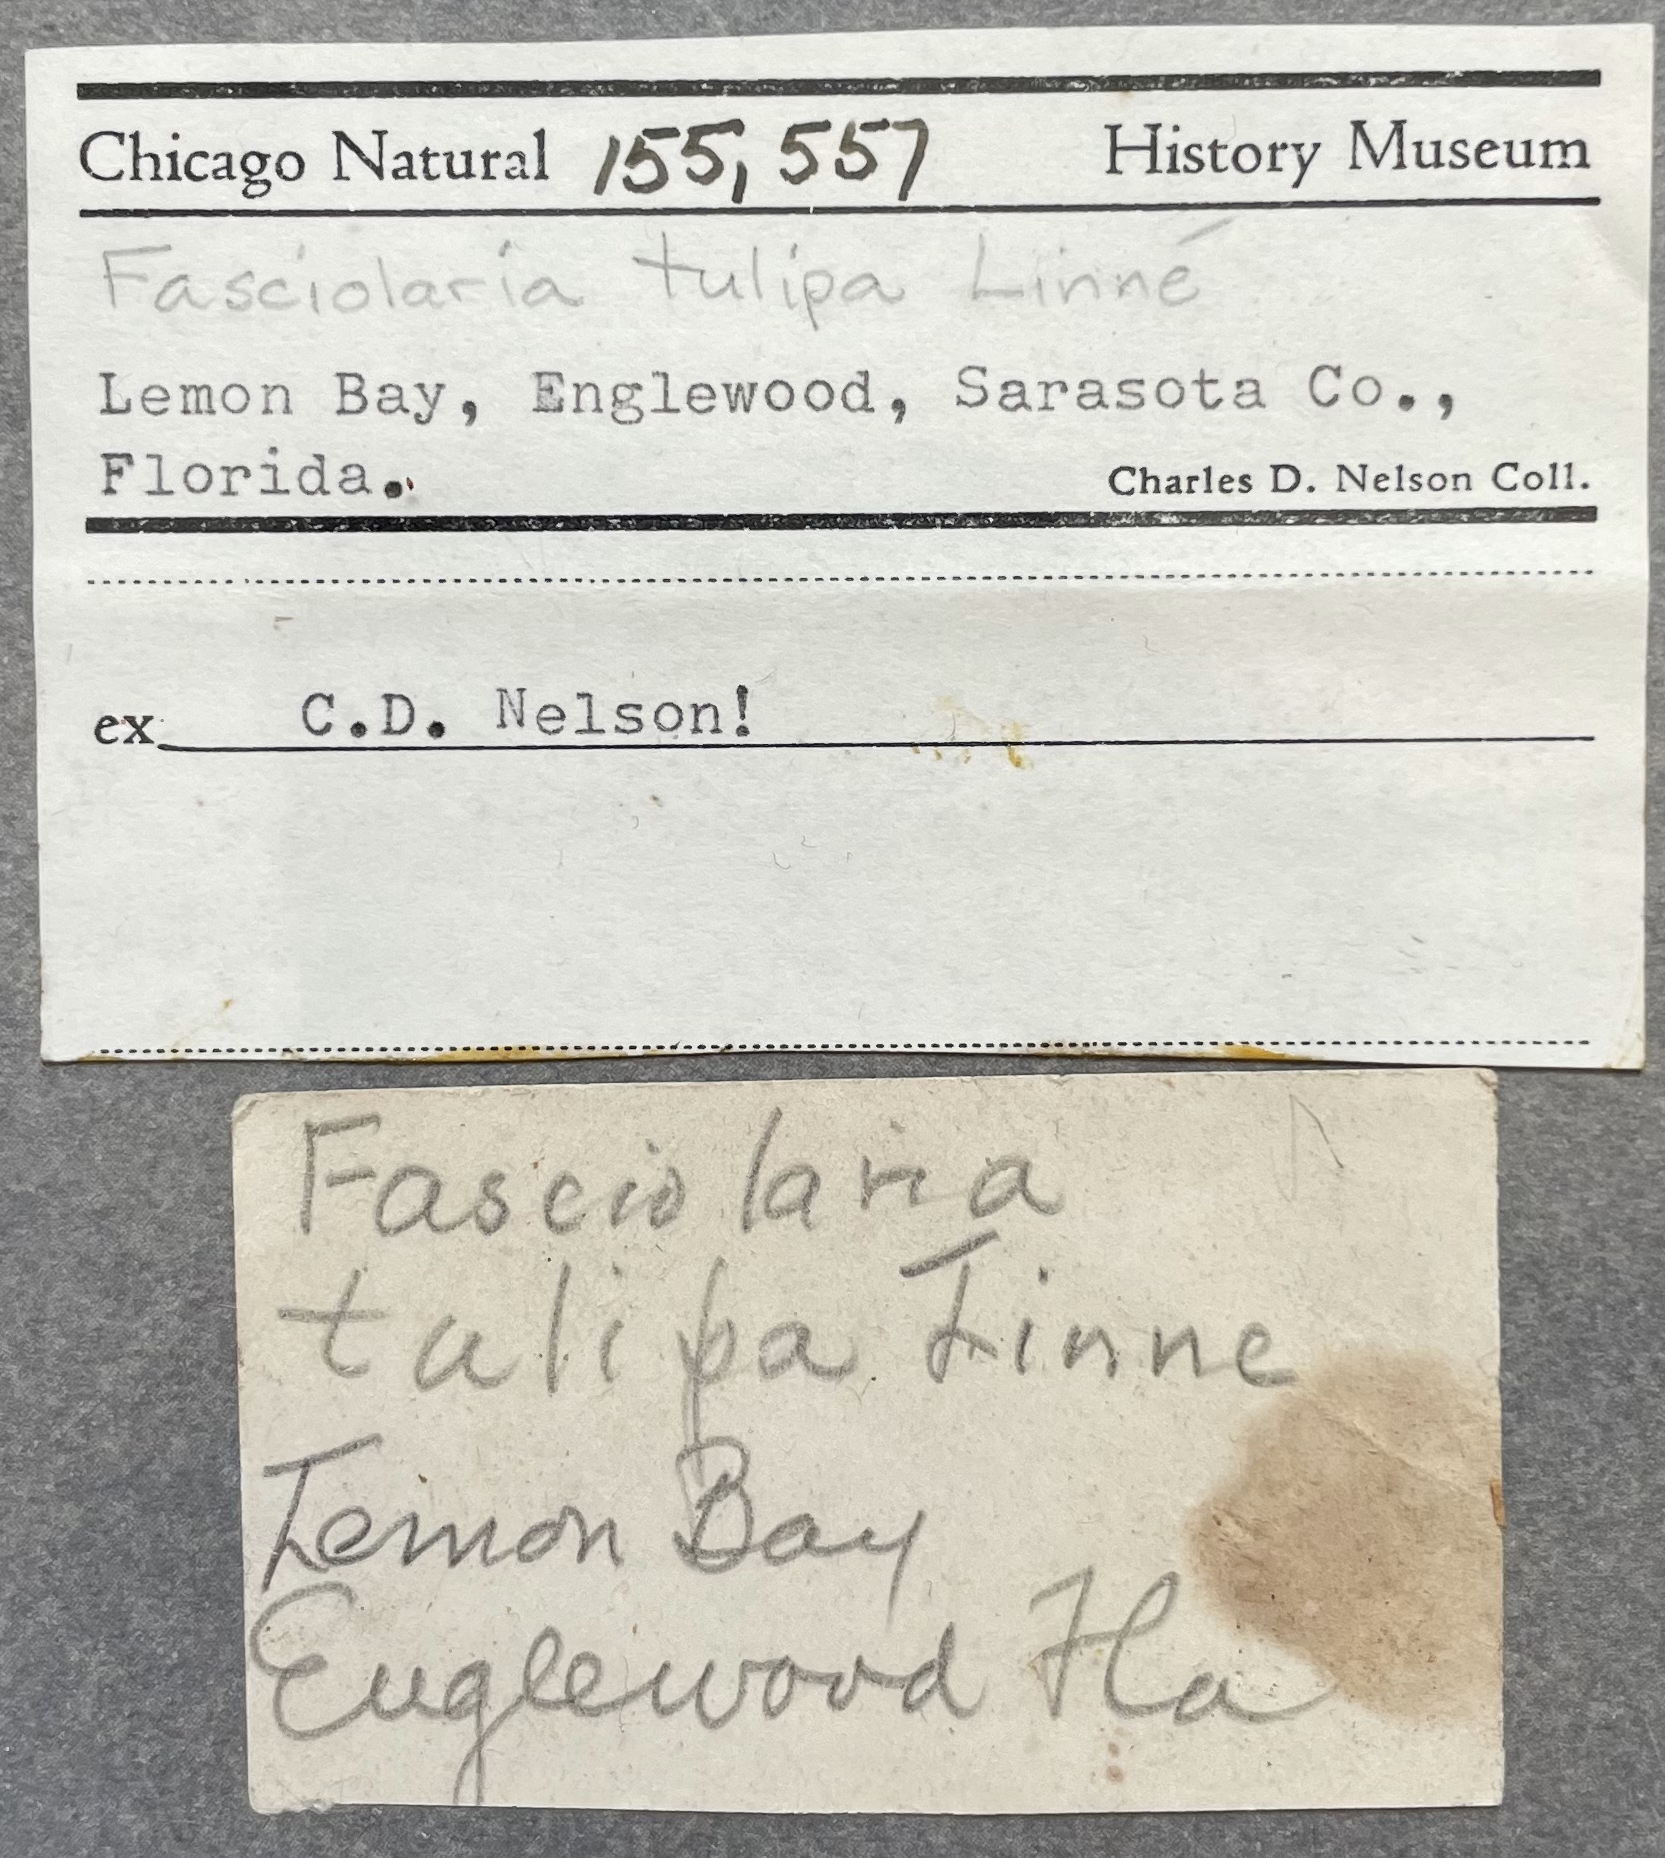 Chicago Natural 155,557 History Museum
Fasciolaria tulipa Linné
Lemon Bay, Englewood, Sarasota Co.,
Florida.
Charles D. Nelson Coll.
ex C.D. Nelson!
Fasciolaria
tulipa Linne
Lemon Bay
Englewood Fla